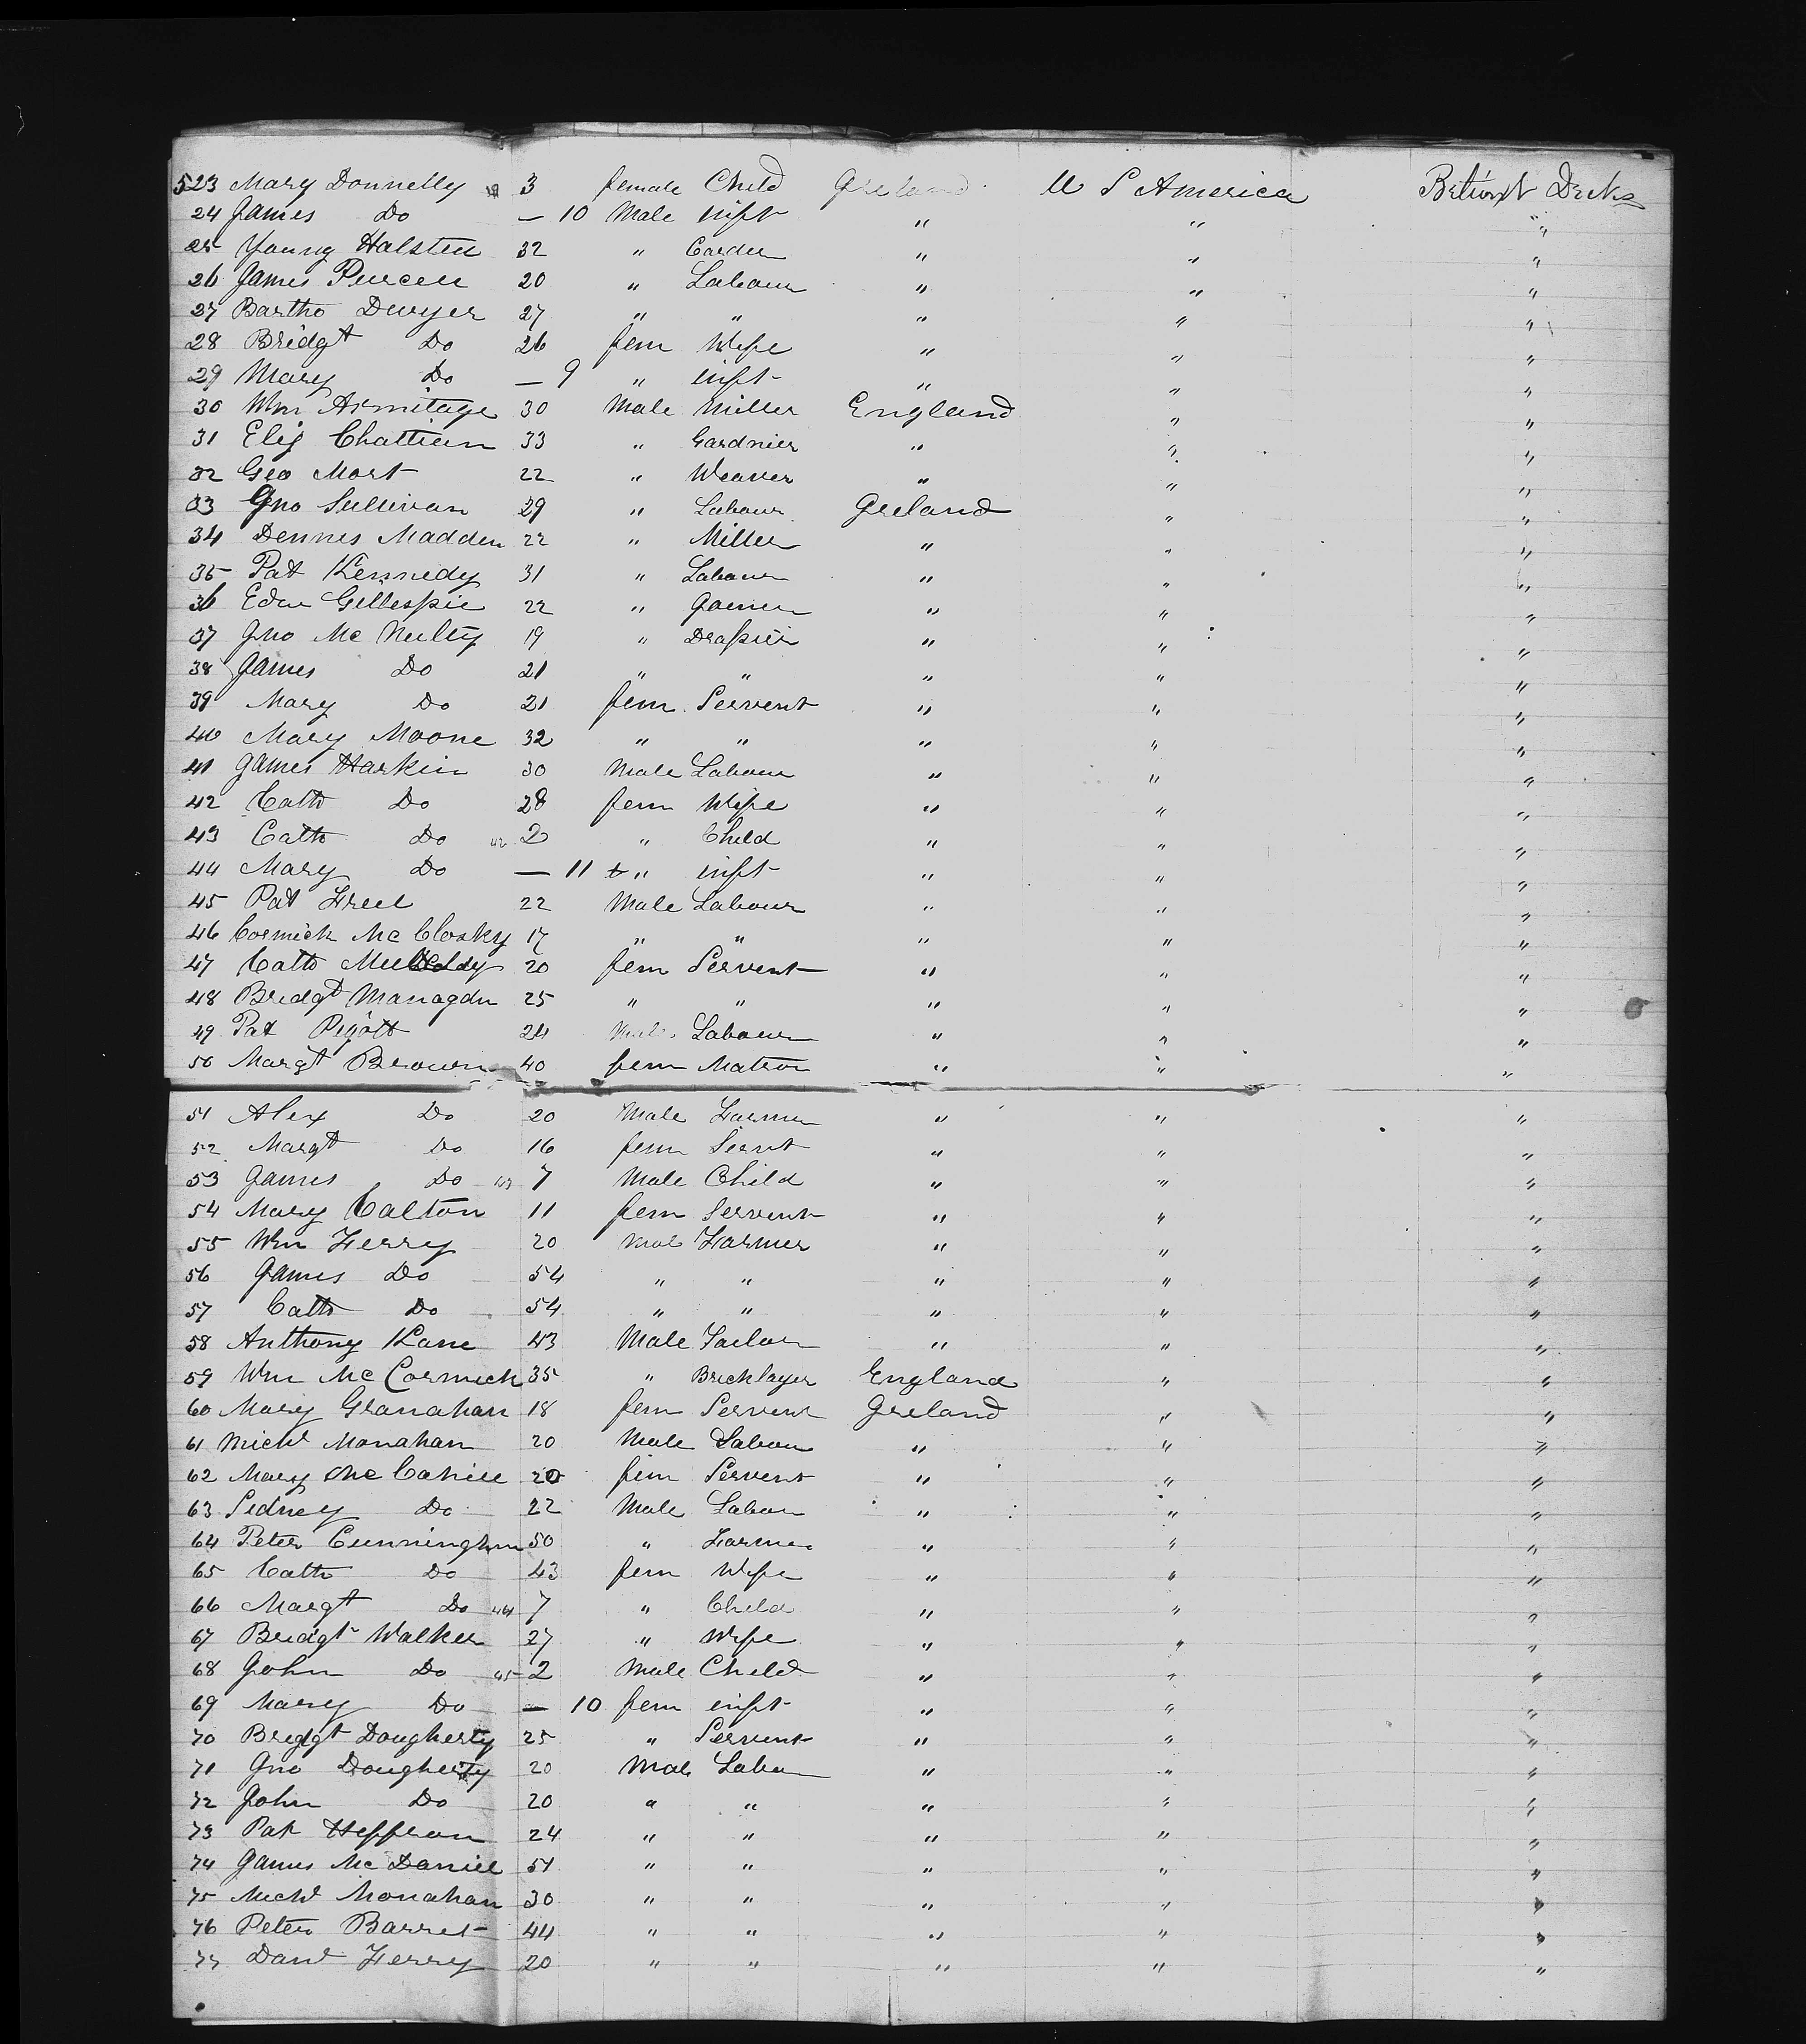 523 Mary Donnelly 3 female Child Ireland U S America Betwixt Decks
24 James Do — 10 Male inft " " "
25 Young Halsted 32 " Carder " " "
26 James Purcell 20 " Labour " " "
27 Bartho Dwyer 27 " " " " "
28 Bridgt Do 26 fem Wife " " "
29 Mary Do — 9 " inft " " "
30 Wm Armitage 30 Male Miller England " "
31 Elij 33 " Gardnier " " "
32 Geo Mort 22 " Weaver " " "
33 Jno Sullivan 29 " Labour Ireland " "
34 Dennis Madden 22 " Miller " " "
35 Pat Kennedy 31 " Labour " " "
36 Edw Gillespie 22 " Joiner " " "
37 Jno Mc Nulty 19 " Drapier " " "
38 James Do 21 " " " " "
39 Mary Do 21 fem Servent " " "
40 Mary Moone 32 " " " " "
41 James Harkin 30 Male Labour " " "
42 Cath Do 28 fem Wife " " "
43 Cath Do 42 2 " Child " " "
44 Mary Do — 11 " inft " " "
45 Pat Freel 22 Male Labour " " "
46 Cormick Mc Closky 17 " " " " "
47 Cath 20 fem Servent " " "
48 Bridgt Managdn 25 " " " " "
49 Pat Pigott 24 Male Labour " " "
50 Margt Brown 40 fem Matron " " "
51 Alex Do 20 Male Farmer " " "
52 Margt Do 16 fem Servt " " "
53 James Do 43 7 Male Child " " "
54 Mary Calton 11 fem Servent " " "
55 Wm Ferry 20 Male Farmer " " "
56 James Do 54 " " " " "
57 Cath Do 54 " " " " "
58 Anthony Kane 43 Male Tailor " " "
59 Wm Mc Cormick 35 " Bricklayer England " "
60 Mary Granahan 18 fem Servent Ireland " "
61 Michl Monahan 20 Male Labour " " "
62 Mary Mc Cahill 20 fem Servent " " "
63 Sidney Do 22 Male Labour " " "
64 Peter Cunninghm 50 " Farmer " " "
65 Cath Do 43 fem Wife " " "
66 Margt Do 44 7 " Child " " "
67 Bridgt Walker 27 " Wife " " "
68 John Do 45 2 Male Child " " "
69 Mary Do — 10 fem inft " " "
70 Bridgt Dougherty 25 " Servent " " "
71 Jno Dougherty 20 Male Labour " " "
72 John Do 20 " " " " "
73 Pat Heffron 24 " " " " "
74 James Mc Daniel 51 " " " " "
75 Michl Monahan 30 " " " " "
76 Peter Barret 44 " " " " "
77 Danl Ferry 20 " " " " "